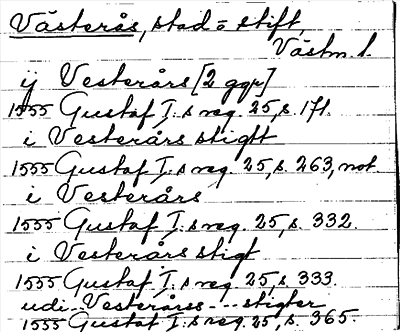 Västerås, stad o stift,
Västm. l.
ij Vesterårs [2 ggr]
1555 Gustaf I:s reg. 25, s. 1 fl.
i Vesterårs stigtt
1555 Gustaf I:s reg. 25, s. 263, not.
i Vesterårs
1555 Gustaf I:s reg. 25, s. 332.
i Vesterårs stigt
1555 Gustaf I:s reg. 25, s. 333.
udi.. Vesterårss... stigter
1555 Gustaf I:s reg. 25, s. 365.